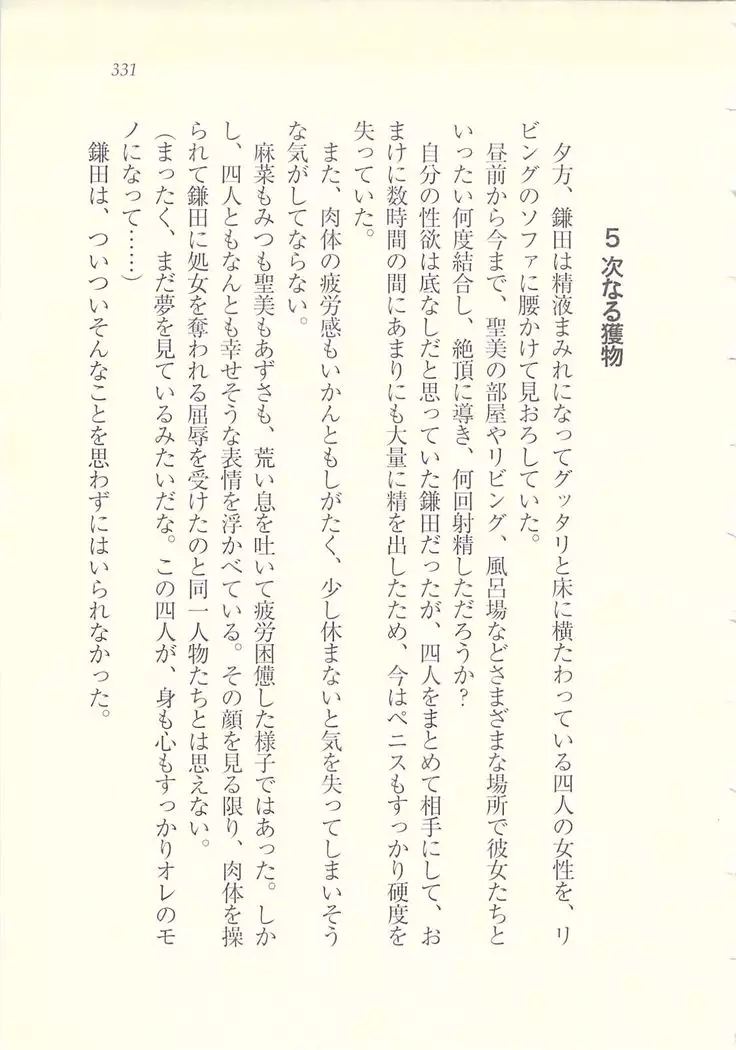 331
5 次なる獲物
　夕方、鎌田は精液まみれになってグッタリと床に横たわっている四人の女性を、リ
ビングのソファに腰かけて見おろしていた。
　昼前から今まで、聖美の部屋やリビング、風呂場などさまざまな場所で彼女たちと
いったい何度結合し、絶頂に導き、何回射精しただろうか？
　自分の性欲は底なしだと思っていた鎌田だったが、四人をまとめて相手にして、お
まけに数時間の間にあまりにも大量に精を出したため、今はペニスもすっかり硬度を
失っていた。
　また、肉体の疲労感もいかんともしがたく、少し休まないと気を失ってしまいそう
な気がしてならない。
　麻菜もみつも聖美もあずさも、荒い息を吐いて疲労困憊した様子ではあった。しか
し、四人ともなんとも幸せそうな表情を浮かべている。その顔を見る限り、肉体を操
られて鎌田に処女を奪われる屈辱を受けたのと同一人物たちとは思えない。
（まったく、まだ夢を見ているみたいだな。この四人が、身も心もすっかりオレのモ
ノになって……）
　鎌田は、ついついそんなことを思わずにはいられなかった。